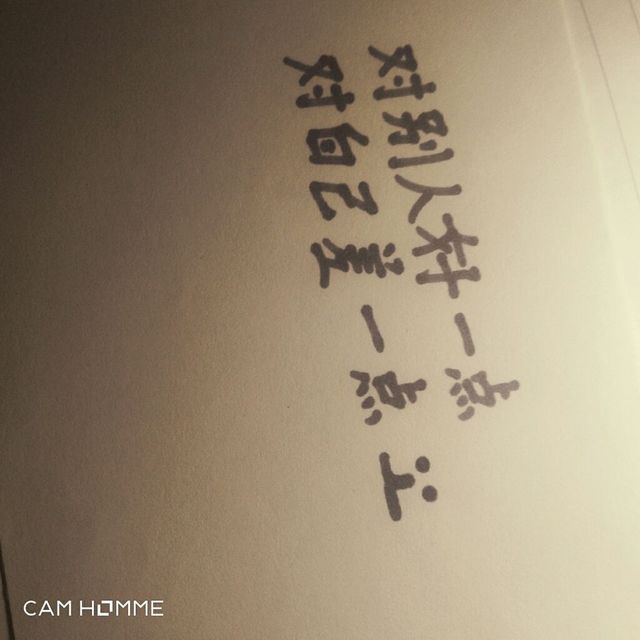 对别人好一点
对自己差一点
CAM HOMME